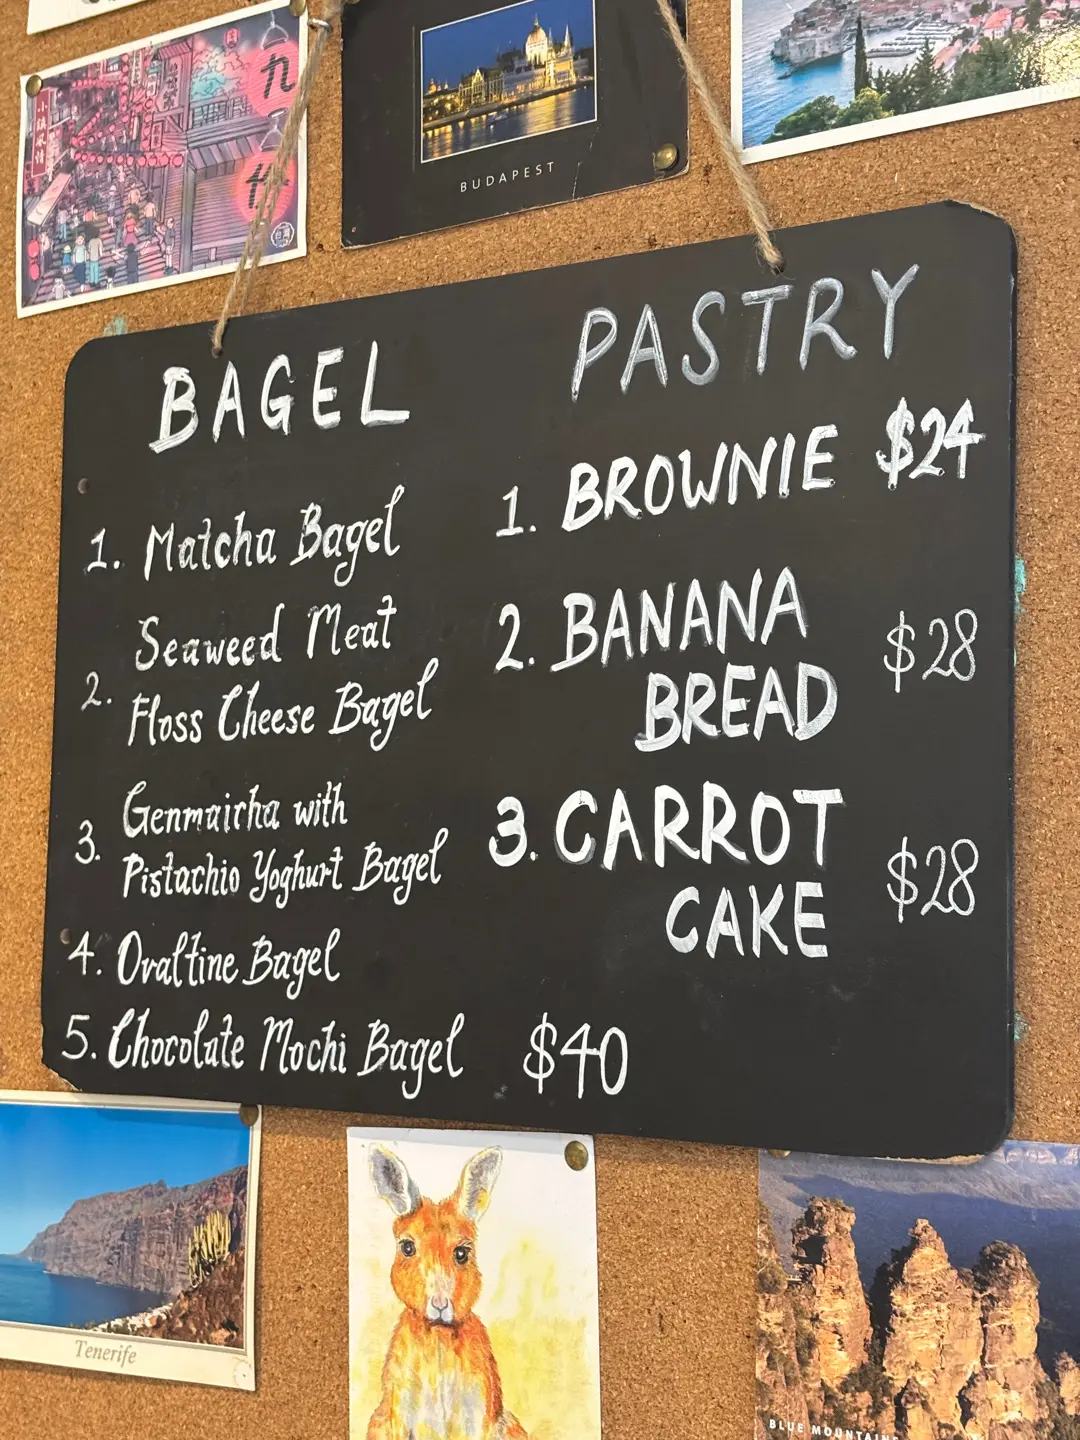 九
小心味香
台灣
BUDAPEST
BAGEL
1. Matcha Bagel
2. Seaweed Meat
Floss Cheese Bagel
3. Genmaicha with
Pistachio Yoghurt Bagel
4. Ovaltine Bagel
5. Chocolate Mochi Bagel $40
PASTRY
1. BROWNIE $24
2. BANANA
BREAD $28
3. CARROT
CAKE $28
Tenerife
BLUE MOUNTAINS